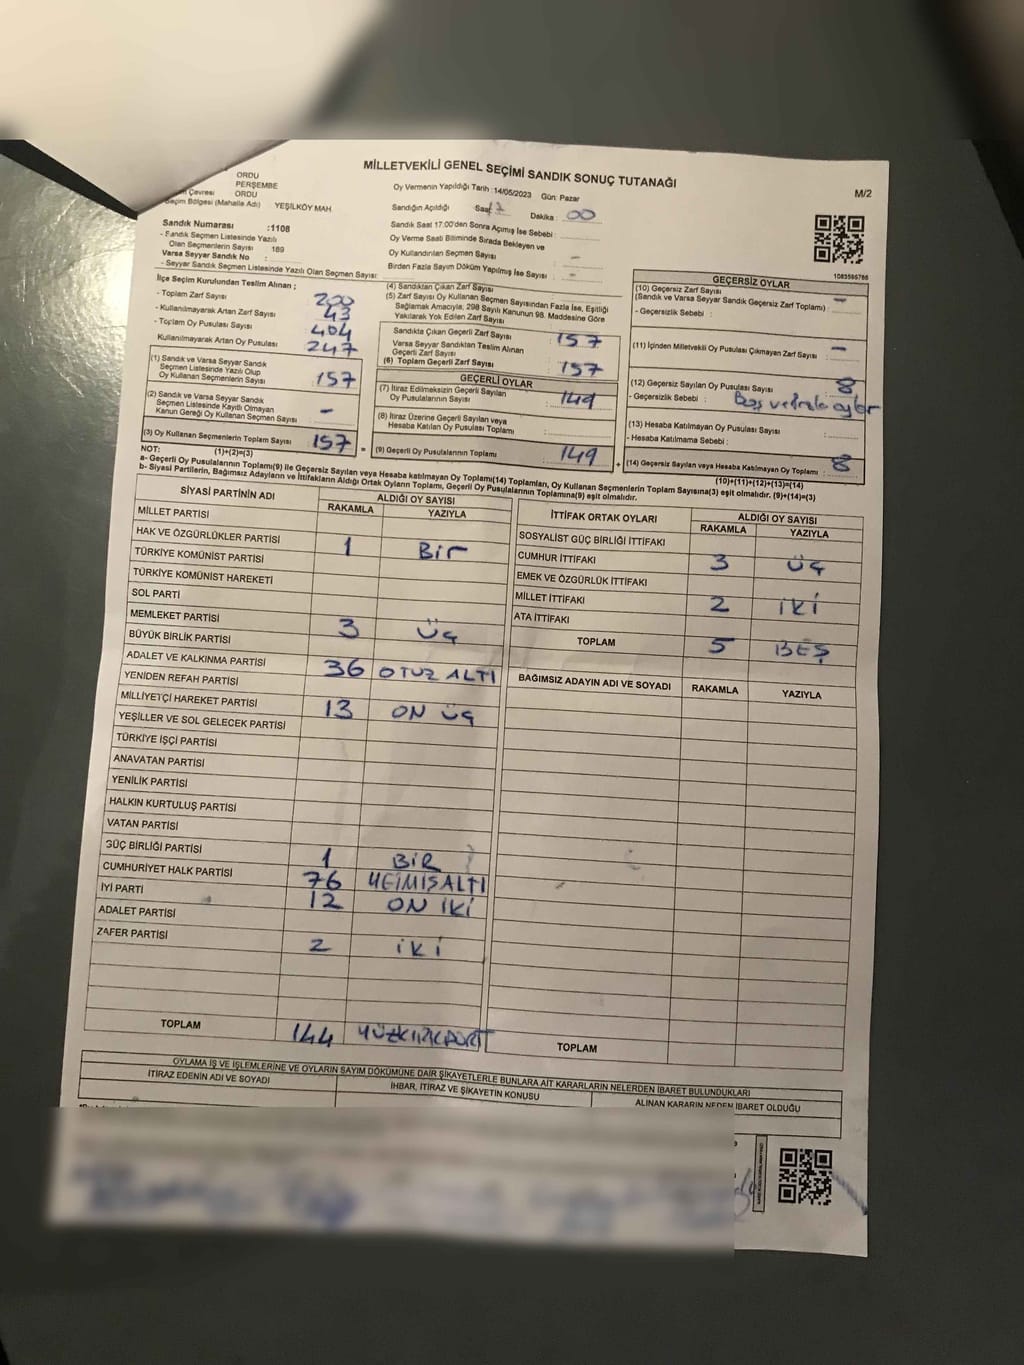 MİLLETVEKİLİ GENEL SEÇİMİ SANDIK SONUÇ TUTANAĞI
M/2
ORDU
PERŞEMBE
Çevresi ORDU
Seçim Bölgesi (Mahalle Adı) YEŞİLKÖY MAH.
Oy Vermenin Yapıldığı Tarih :14/05/2023 Gün: Pazar
Sandığın Açıldığı Saat Dakika : 00
Sandık Numarası :1108
- Sandık Seçmen Listesinde Yazılı
Olan Seçmenlerin Sayısı 189
Varsa Seyyar Sandık No :
- Seyyar Sandık Seçmen Listesinde Yazılı Olan Seçmen Sayısı:
Sandık Saat 17.00'den Sonra Açılmış İse Sebebi :
Oy Verme Saati Bitiminde Sırada Bekleyen ve
Oy Kullandırılan Seçmen Sayısı : -
Birden Fazla Sayım Döküm Yapılmış İse Sayısı : -
1083585786
İlçe Seçim Kurulundan Teslim Alınan ;
- Toplam Zarf Sayısı 200
- Kullanılmayarak Artan Zarf Sayısı : 43
- Toplam Oy Pusulası Sayısı 404
Kullanılmayarak Artan Oy Pusulası 247
(1) Sandık ve Varsa Seyyar Sandık
Seçmen Listesinde Yazılı Olup
Oy Kullanan Seçmenlerin Sayısı 157
(2) Sandık ve Varsa Seyyar Sandık
Seçmen Listesinde Kayıtlı Olmayan
Kanun Gereği Oy Kullanan Seçmen Sayısı -
(3) Oy Kullanan Seçmenlerin Toplam Sayısı 157
(1)+(2)=(3)
(4) Sandıktan Çıkan Zarf Sayısı
(5) Zarf Sayısı Oy Kullanan Seçmen Sayısından Fazla İse, Eşitliği
Sağlamak Amacıyla; 298 Sayılı Kanunun 98. Maddesine Göre
Yakılarak Yok Edilen Zarf Sayısı :
Sandıkta Çıkan Geçerli Zarf Sayısı : 157
Varsa Seyyar Sandıktan Teslim Alınan
Geçerli Zarf Sayısı
(6) Toplam Geçerli Zarf Sayısı : 157
GEÇERLİ OYLAR
(7) İtiraz Edilmeksizin Geçerli Sayılan
Oy Pusulalarının Sayısı : 149
(8) İtiraz Üzerine Geçerli Sayılan veya
Hesaba Katılan Oy Pusulası Toplamı :
= (9) Geçerli Oy Pusulalarının Toplamı : 149
GEÇERSİZ OYLAR
(10) Geçersiz Zarf Sayısı
(Sandık ve Varsa Seyyar Sandık Geçersiz Zarf Toplamı) : -
- Geçersizlik Sebebi :
(11) İçinden Milletvekili Oy Pusulası Çıkmayan Zarf Sayısı : -
(12) Geçersiz Sayılan Oy Pusulası Sayısı : 8
- Geçersizlik Sebebi : Boş ve oylar
(13) Hesaba Katılmayan Oy Pusulası Sayısı :
- Hesaba Katılmama Sebebi :
+ (14) Geçersiz Sayılan veya Hesaba Katılmayan Oy Toplamı : 8
(10)+(11)+(12)+(13)=(14)
NOT:
a- Geçerli Oy Pusulalarının Toplamı(9) ile Geçersiz Sayılan veya Hesaba katılmayan Oy Toplamı(14) Toplamları, Oy Kullanan Seçmenlerin Toplam Sayısına(3) eşit olmalıdır. (9)+(14)=(3)
b- Siyasi Partilerin, Bağımsız Adayların ve İttifakların Aldığı Ortak Oyların Toplamı, Geçerli Oy Pusulalarının Toplamına(9) eşit olmalıdır.
SİYASİ PARTİNİN ADI ALDIĞI OY SAYISI
RAKAMLA YAZIYLA
MİLLET PARTİSİ
HAK VE ÖZGÜRLÜKLER PARTİSİ 1 Bir
TÜRKİYE KOMÜNİST PARTİSİ
TÜRKİYE KOMÜNİST HAREKETİ
SOL PARTİ
MEMLEKET PARTİSİ 3 Üç
BÜYÜK BİRLİK PARTİSİ
ADALET VE KALKINMA PARTİSİ 36 OTUZ ALTI
YENİDEN REFAH PARTİSİ
MİLLİYETÇİ HAREKET PARTİSİ 13 ON ÜÇ
YEŞİLLER VE SOL GELECEK PARTİSİ
TÜRKİYE İŞÇİ PARTİSİ
ANAVATAN PARTİSİ
YENİLİK PARTİSİ
HALKIN KURTULUŞ PARTİSİ
VATAN PARTİSİ
GÜÇ BİRLİĞİ PARTİSİ 1 BİR
CUMHURİYET HALK PARTİSİ 76 YETMİŞALTI
İYİ PARTİ 12 ON İKİ
ADALET PARTİSİ
ZAFER PARTİSİ 2 İKİ
TOPLAM 144 YÜZKIRKDÖRT
İTTİFAK ORTAK OYLARI ALDIĞI OY SAYISI
RAKAMLA YAZIYLA
SOSYALİST GÜÇ BİRLİĞİ İTTİFAKI
CUMHUR İTTİFAKI 3 ÜÇ
EMEK VE ÖZGÜRLÜK İTTİFAKI
MİLLET İTTİFAKI 2 İKİ
ATA İTTİFAKI
TOPLAM 5 BEŞ
BAĞIMSIZ ADAYIN ADI VE SOYADI RAKAMLA YAZIYLA
TOPLAM
OYLAMA İŞ VE İŞLEMLERİNE VE OYLARIN SAYIM DÖKÜMÜNE DAİR ŞİKAYETLERLE BUNLARA AİT KARARLARIN NELERDEN İBARET BULUNDUKLARI
İTİRAZ EDENİN ADI VE SOYADI
İHBAR, İTİRAZ VE ŞİKAYETİN KONUSU
ALINAN KARARIN NEDEN İBARET OLDUĞU